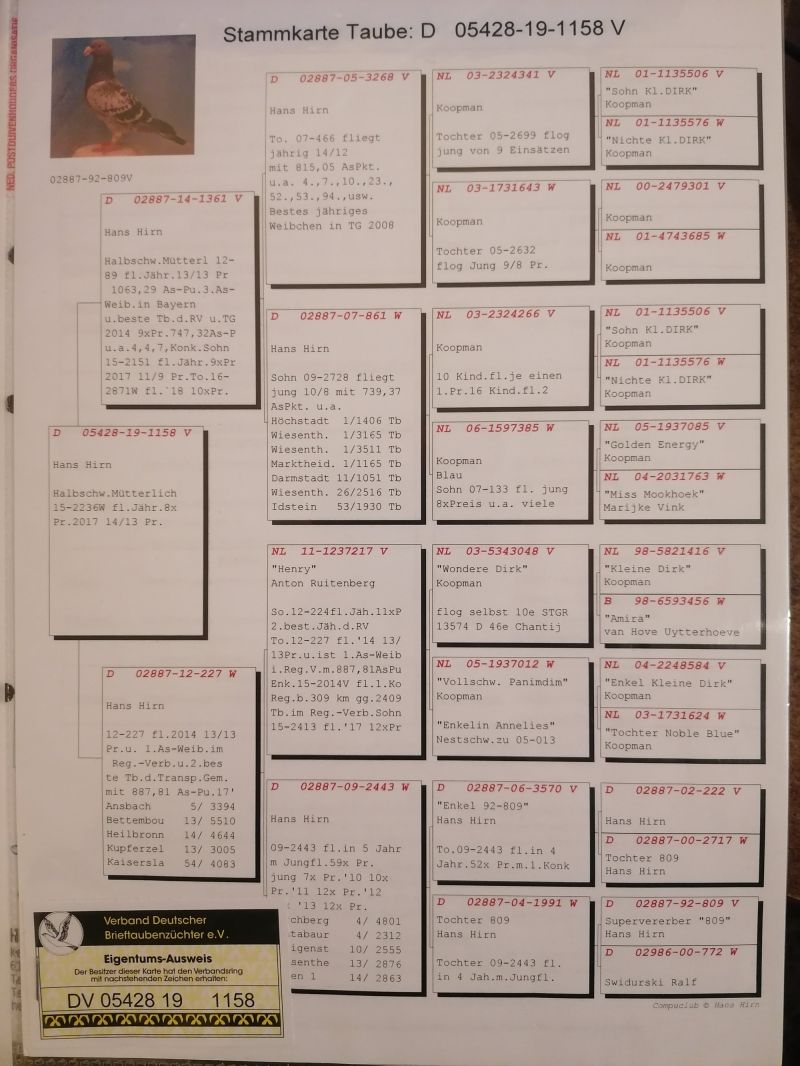 Stammkarte Taube: D 05428-19-1158 V
NED. POSTDUIVENHOUDERS ORGANISATIE
02887-92-809V
D 05428-19-1158 V
Hans Hirn
Halbschw.Mütterlich
15-2236W fl.Jähr.8x
Pr.2017 14/13 Pr.
D 02887-14-1361 V
Hans Hirn
Halbschw.Mütterl 12-
89 fl.Jähr.13/13 Pr
1063,29 As-Pu.3.As-
Weib.in Bayern
u.beste Tb.d.RV u.TG
2014 9xPr.747,32As-P
u.a.4,4,7,Konk.Sohn
15-2151 fl.Jähr.9xPr
2017 11/9 Pr.To.16-
2871W fl.`18 10xPr.
D 02887-12-227 W
Hans Hirn
12-227 fl.2014 13/13
Pr.u. 1.As-Weib.im
Reg.-Verb.u.2.bes
te Tb.d.Transp.Gem.
mit 887,81 As-Pu.17'
Ansbach 5/ 3394
Bettembou 13/ 5510
Heilbronn 14/ 4644
Kupferzel 13/ 3005
Kaisersla 54/ 4083
D 02887-05-3268 V
Hans Hirn
To. 07-466 fliegt
jährig 14/12
mit 815,05 AsPkt.
u.a. 4.,7.,10.,23.,
52.,53.,94.,usw.
Bestes jähriges
Weibchen in TG 2008
D 02887-07-861 W
Hans Hirn
Sohn 09-2728 fliegt
jung 10/8 mit 739,37
AsPkt. u.a.
Höchstadt 1/1406 Tb
Wiesenth. 1/3165 Tb
Wiesenth. 1/3511 Tb
Marktheid. 1/1165 Tb
Darmstadt 11/1051 Tb
Wiesenth. 26/2516 Tb
Idstein 53/1930 Tb
NL 11-1237217 V
"Henry"
Anton Ruitenberg
So.12-224fl.Jäh.11xP
2.best.Jäh.d.RV
To.12-227 fl.'14 13/
13Pr.u.ist 1.As-Weib
i.Reg.V.m.887,81AsPu
Enk.15-2014V fl.1.Ko
Reg.b.309 km gg.2409
Tb.im Reg.-Verb.Sohn
15-2413 fl.'17 12xPr
D 02887-09-2443 W
Hans Hirn
09-2443 fl.in 5 Jahr
m Jungfl.59x Pr.
jung 7x Pr.'10 10x
Pr.'11 12x Pr.'12
'13 12x Pr.
chberg 4/ 4801
tabaur 4/ 2312
igenst 10/ 2555
senthe 13/ 2876
en 1 14/ 2863
NL 03-2324341 V
Koopman
Tochter 05-2699 flog
jung von 9 Einsätzen
NL 03-1731643 W
Koopman
Tochter 05-2632
flog Jung 9/8 Pr.
NL 03-2324266 V
Koopman
10 Kind.fl.je einen
1.Pr.16 Kind.fl.2
NL 06-1597385 W
Koopman
Blau
Sohn 07-133 fl. jung
8xPreis u.a. viele
NL 03-5343048 V
"Wondere Dirk"
Koopman
flog selbst 10e STGR
13574 D 46e Chantij
NL 05-1937012 W
"Vollschw. Panimdim"
Koopman
"Enkelin Annelies"
Nestschw.zu 05-013
D 02887-06-3570 V
"Enkel 92-809"
Hans Hirn
To.09-2443 fl.in 4
Jahr.52x Pr.m.1.Konk
D 02887-04-1991 W
Tochter 809
Hans Hirn
Tochter 09-2443 fl.
in 4 Jah.m.Jungfl.
NL 01-1135506 V
"Sohn Kl.DIRK"
Koopman
NL 01-1135576 W
"Nichte Kl.DIRK"
Koopman
NL 00-2479301 V
Koopman
NL 01-4743685 W
Koopman
NL 01-1135506 V
"Sohn Kl.DIRK"
Koopman
NL 01-1135576 W
"Nichte Kl.DIRK"
Koopman
NL 05-1937085 V
"Golden Energy"
Koopman
NL 04-2031763 W
"Miss Mookhoek"
Marijke Vink
NL 98-5821416 V
"Kleine Dirk"
Koopman
B 98-6593456 W
"Amira"
van Hove Uytterhoeve
NL 04-2248584 V
"Enkel Kleine Dirk"
Koopman
NL 03-1731624 W
"Tochter Noble Blue"
Koopman
D 02887-02-222 V
Hans Hirn
D 02887-00-2717 W
Tochter 809
Hans Hirn
D 02887-92-809 V
Supervererber "809"
Hans Hirn
D 02986-00-772 W
Swidurski Ralf
Compuclub © Hans Hirn
Verband Deutscher
Brieftaubenzüchter e.V.
Eigentums-Ausweis
Der Besitzer dieser Karte hat den Verbandsring
mit nachstehenden Zeichen erhalten:
DV 05428 19 1158